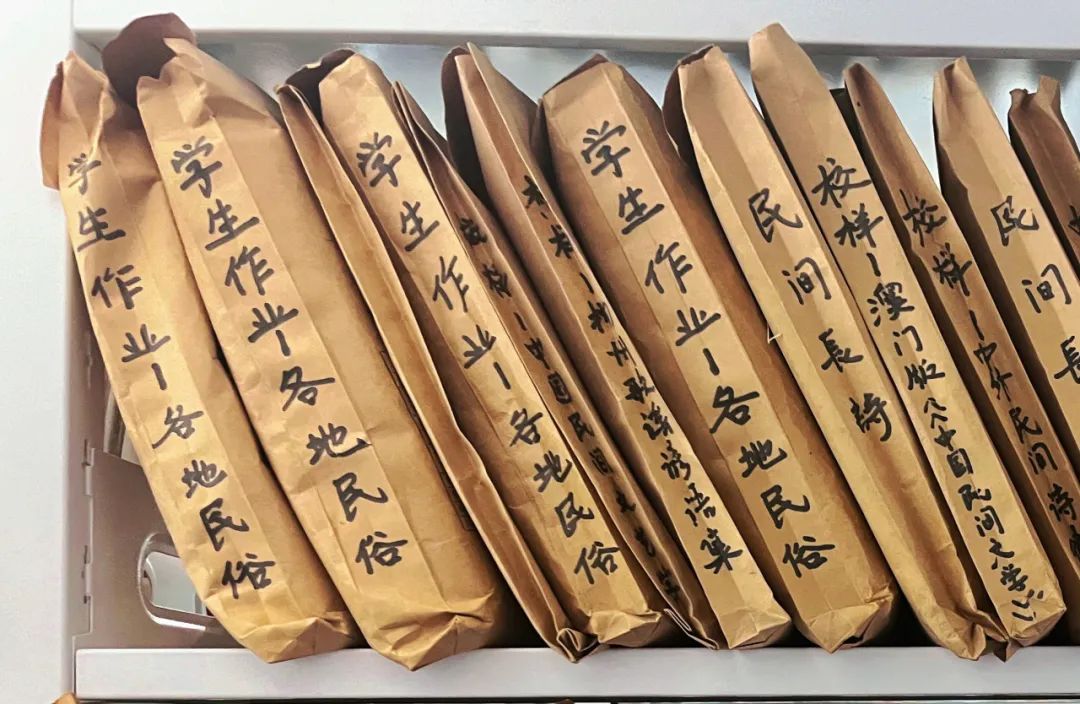 学生作业-各地民俗
学生作业-各地民俗
学生作业-各地民俗
校样-中国民间文艺
校样-杭州歌谣谚语集
学生作业-各地民俗
民间長诗
校样-澳门版《中国民间文学》
校样-中外民间诗
民间長